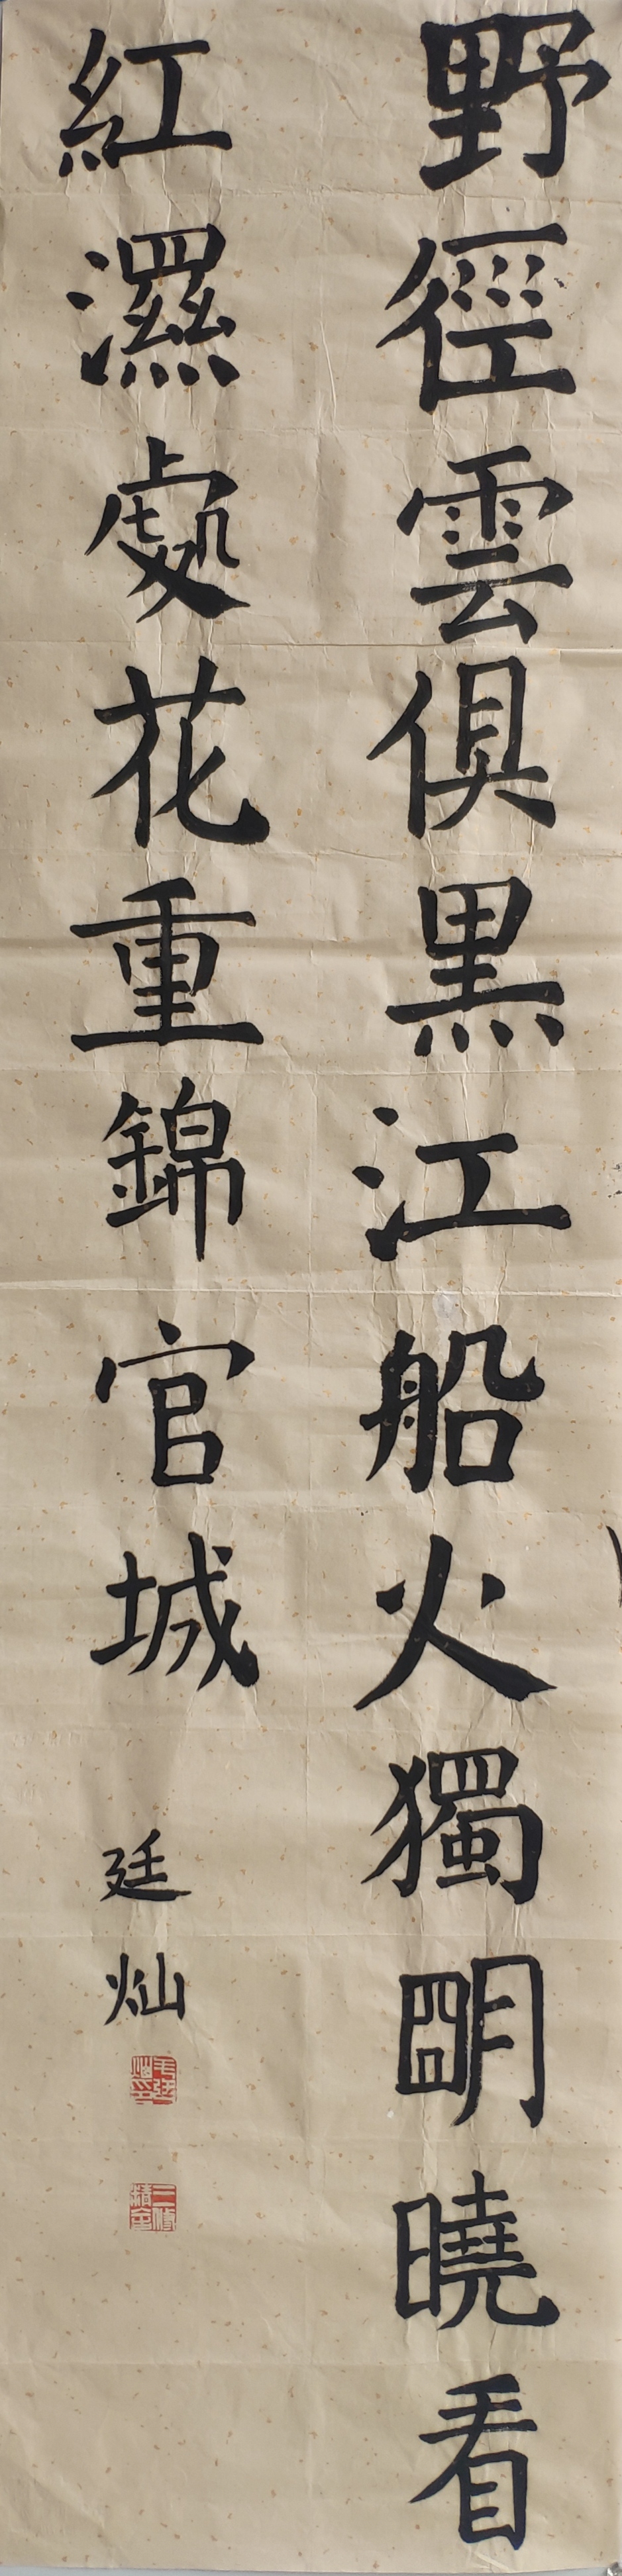 野徑雲俱黑江船火獨明曉看
紅濕處花重錦官城
廷灿